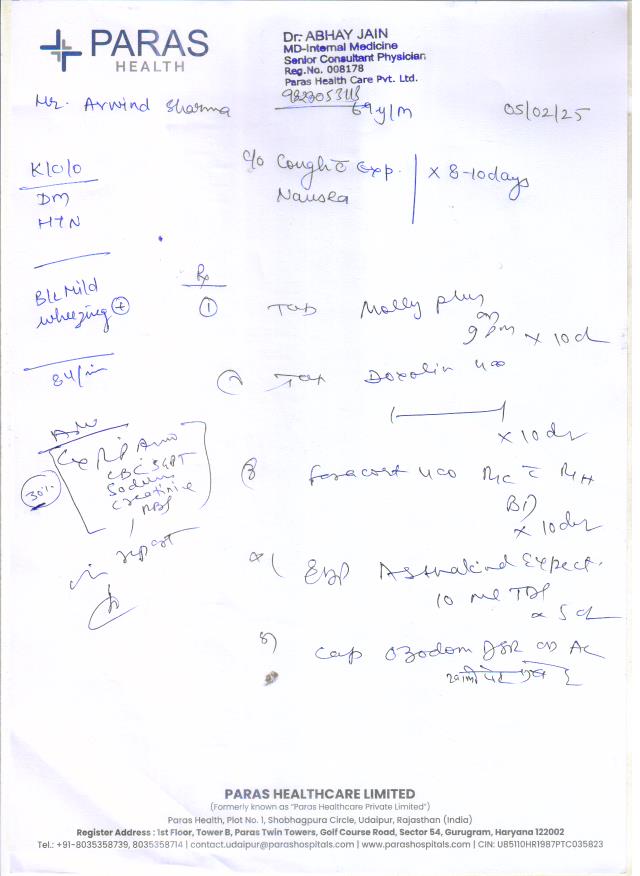 PARAS
HEALTH
Dr. ABHAY JAIN
MD-Internal Medicine
Senior Consultant Physician
Reg.No. 008178
Paras Health Care Pvt. Ltd.
Mr. Arwind Sharma
69y/M
05/02/25
K/C/O
DM
HTN
C/O Cough c̄ Exp.
Nausea
x 8-10days
B/L Mild
wheezing +
84/m
Rx
1 Tab Molly plus
9pm x 10d
Tab Doxolin 400
x 10d
Foracort 400
BD
x 10d
Syp Asthakind Expect.
10 ml TDS
x 5d
5) Cap Ozodom DSR OD AC
Adv
CBC SGPT
Sodium
Creatinine
RBS
30%
report
PARAS HEALTHCARE LIMITED
(Formerly known as "Paras Healthcare Private Limited")
Paras Health, Plot No. 1, Shobhagpura Circle, Udaipur, Rajasthan (India)
Register Address : 1st Floor, Tower B, Paras Twin Towers, Golf Course Road, Sector 54, Gurugram, Haryana 122002
Tel.: +91-8035358739, 8035358714 | contact.udaipur@parashospitals.com | www.parashospitals.com | CIN: U85110HR1987PTC035823